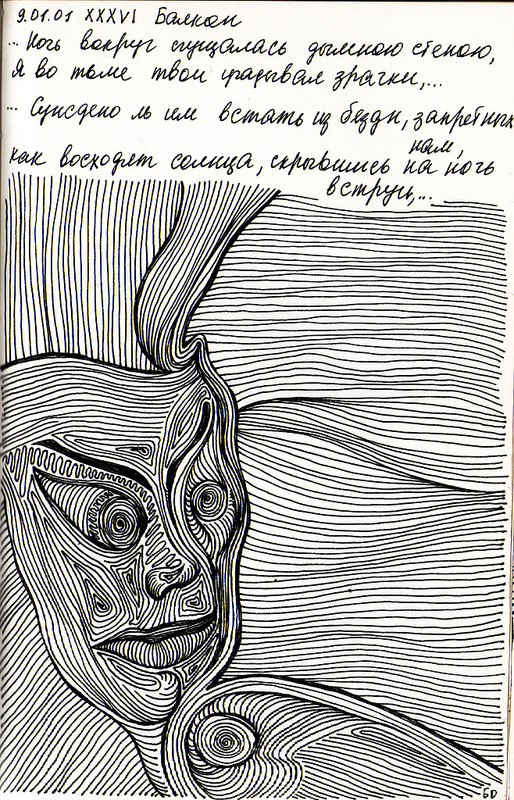 9.01.01 XXXVI Балкон
... Ночь вокруг сгущалась дымною стеною,
Я во тьме твои угадывал зрачки,...
... Суждено ль им встать из бездн, запретных
нам,
Как восходят солнца, скрывшись на ночь
в струи,...
БD